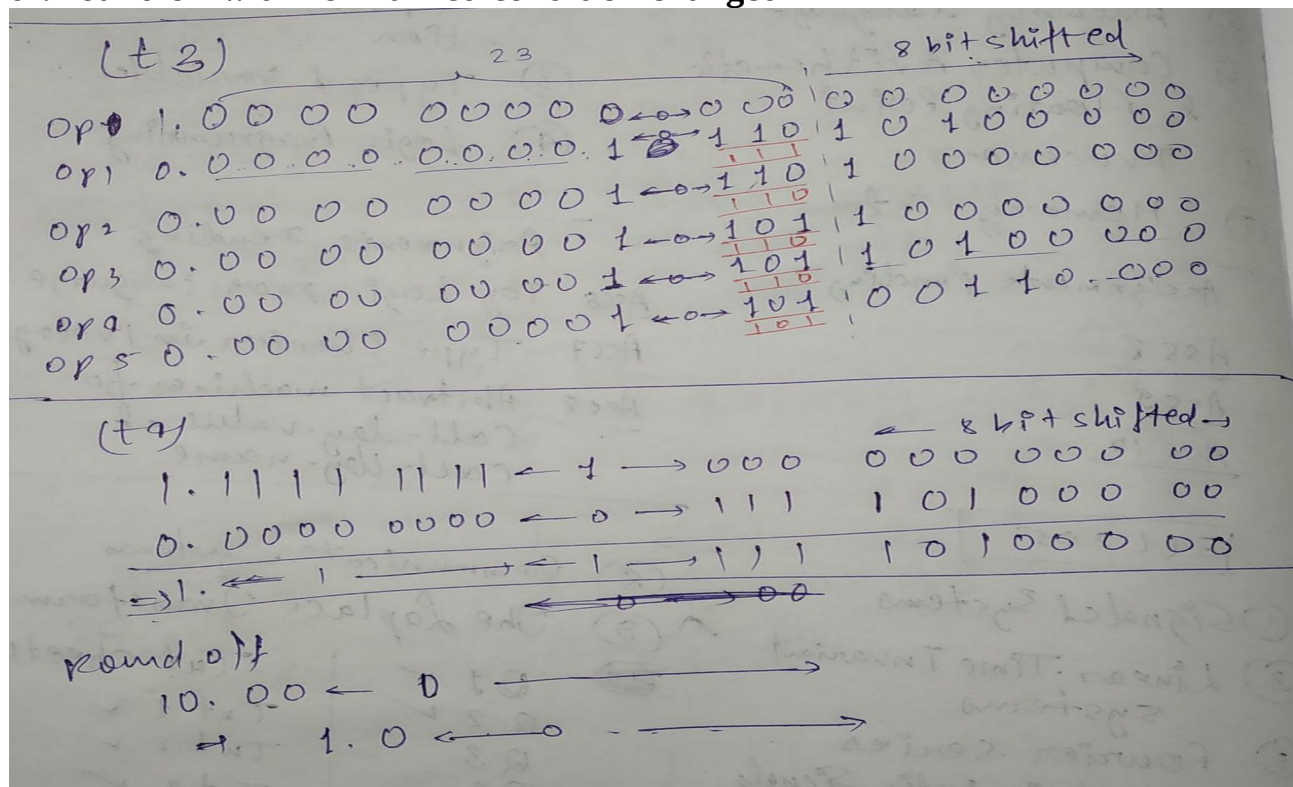 (t 3) 23 8 bit shifted
op 1. 0 0 0 0 0 0 0 0 0 ↔0→ 0 0 0 0 0 0 0 0 0 0 0
op1 0. 0 0 0 0 0 0 0 0 1 ←0→ 1 1 0 1 0 1 0 0 0 0 0
1 1 1
op2 0. 0 0 0 0 0 0 0 0 1 ←0→ 1 1 0 1 0 0 0 0 0 0 0
1 1 0
op3 0. 0 0 0 0 0 0 0 0 1 ←0→ 1 0 1 1 0 0 0 0 0 0 0
1 1 0
op4 0. 0 0 0 0 0 0 0 0 1 ←0→ 1 0 1 1 0 1 0 0 0 0 0
1 1 0
op 5 0. 0 0 0 0 0 0 0 0 1 ←0→ 1 0 1 0 0 1 1 0 0 0 0
1 0 1
(t 4) ← 8 bit shifted →
1. 1 1 1 1 1 1 1 1 ← 1 → 0 0 0 0 0 0 0 0 0 0 0
0. 0 0 0 0 0 0 0 0 ← 0 → 1 1 1 1 0 1 0 0 0 0 0
⇒ 1. ← 1 → ← 1 → 1 1 1 1 0 1 0 0 0 0 0
Round off
10. 00 ← 0 →
⇒ 1. 0 ← 0 →